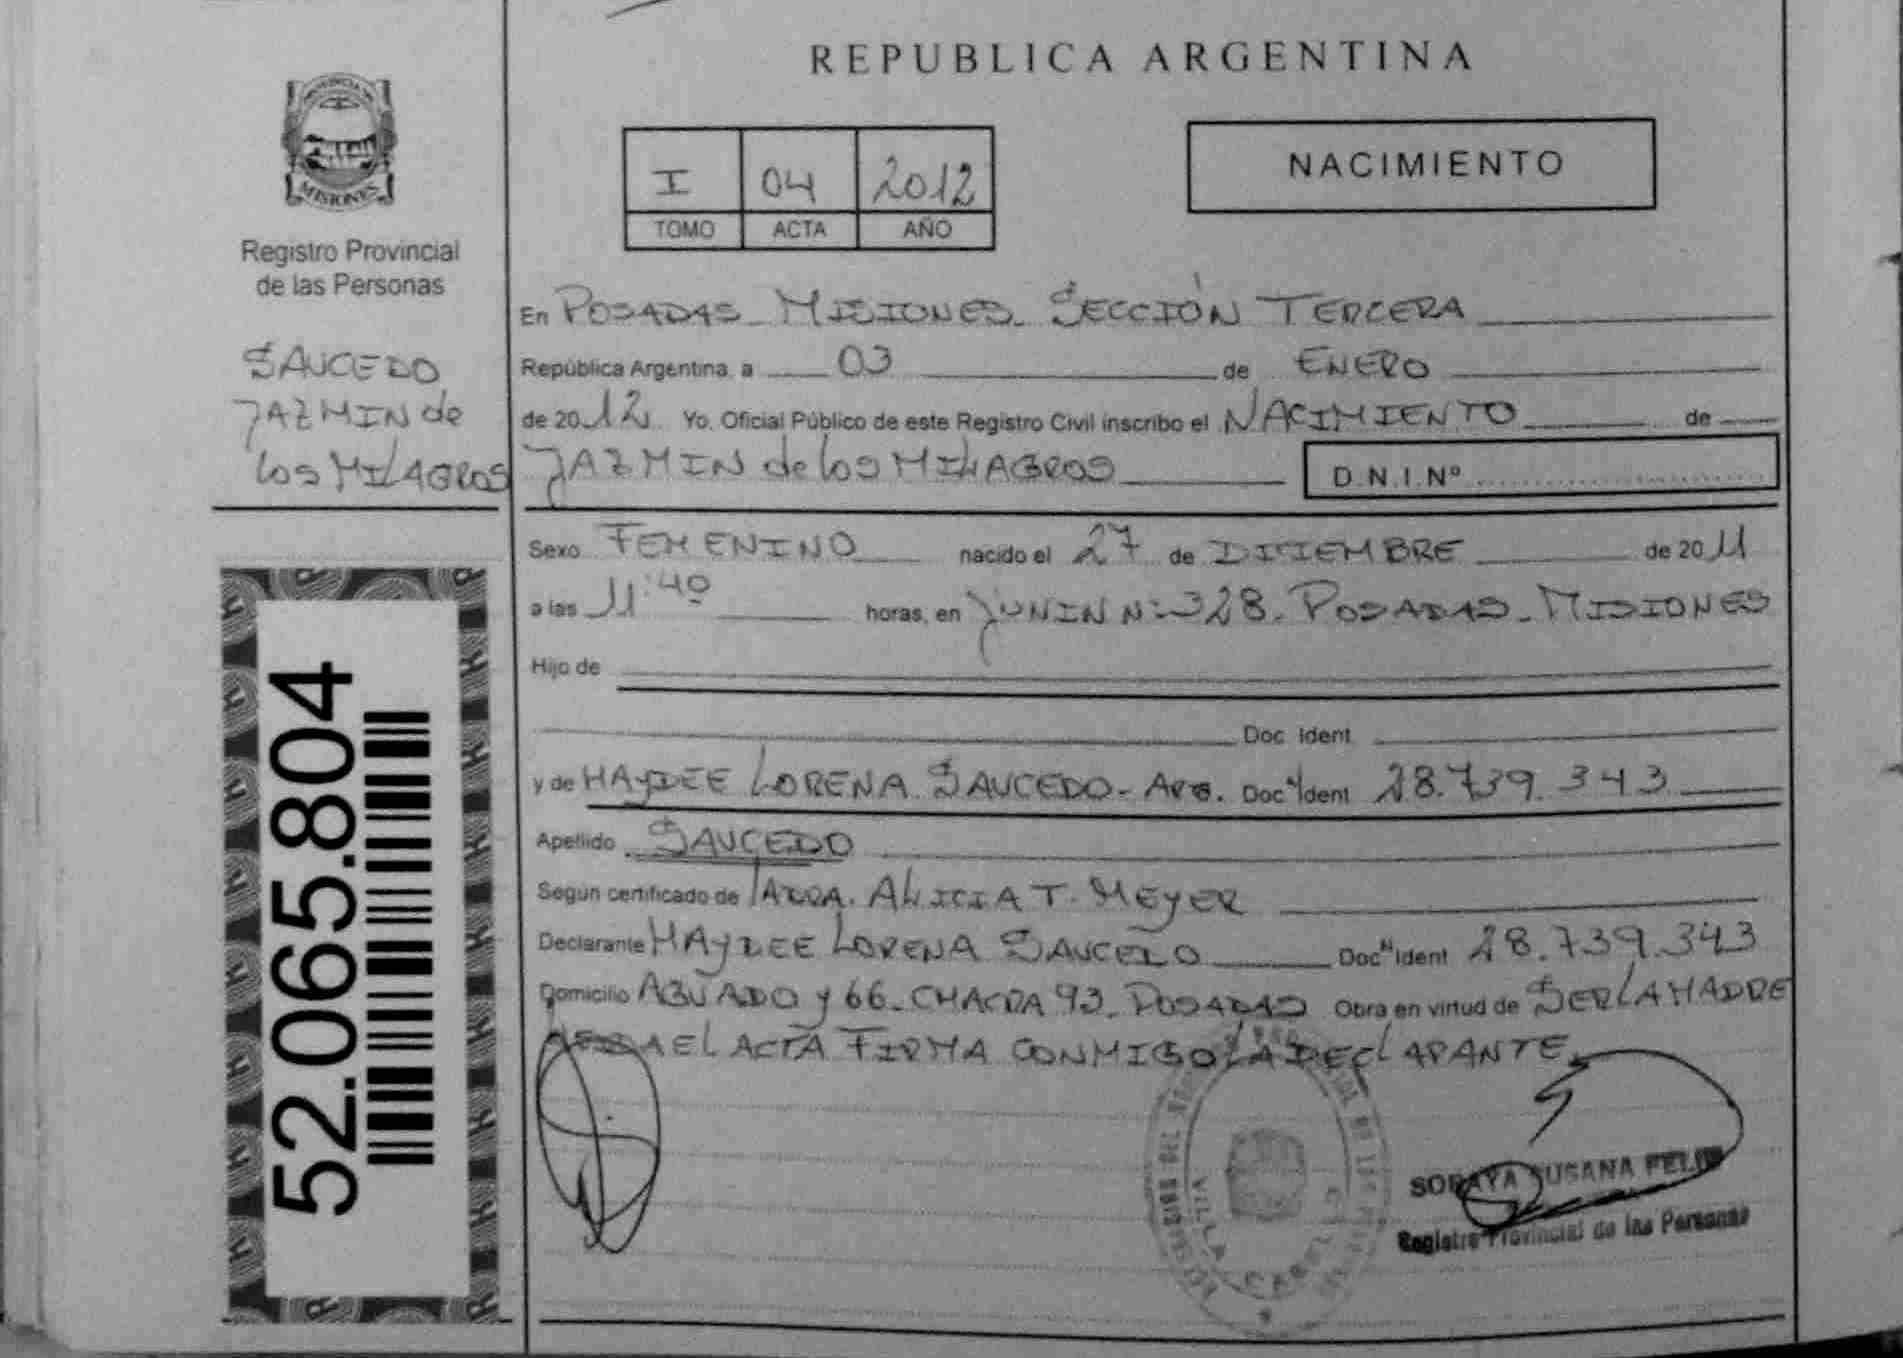 REPUBLICA ARGENTINA
PROVINCIA DE
MISIONES
Registro Provincial
de las Personas
SAUCEDO
JAZMIN de
los MILAGROS
52.065.804
I 04 2012
TOMO ACTA AÑO
NACIMIENTO
En POSADAS - MISIONES - SECCIÓN TERCERA
República Argentina, a 03 de ENERO
de 2012 Yo, Oficial Público de este Registro Civil inscribo el NACIMIENTO de
JAZMIN de los MILAGROS D.N.I.Nº
Sexo FEMENINO nacido el 27 de DICIEMBRE de 2011
a las 11:40 horas, en JUNIN Nº 328 - POSADAS - MISIONES
Hijo de
Doc. Ident.
y de HAYDEE LORENA SAUCEDO - ARG. Doc. Ident. 28.739.343
Apellido SAUCEDO
Según certificado de ALICIA T. MEYER
Declarante HAYDEE LORENA SAUCEDO Doc. Ident. 28.739.343
Domicilio AGUADO y 66 - CHACRA 93 - POSADAS Obra en virtud de SER LA MADRE
EL ACTA FIRMA CONMIGO LA DECLARANTE
VILLA CABELLO
SORAYA SUSANA
Registro Provincial de las Personas